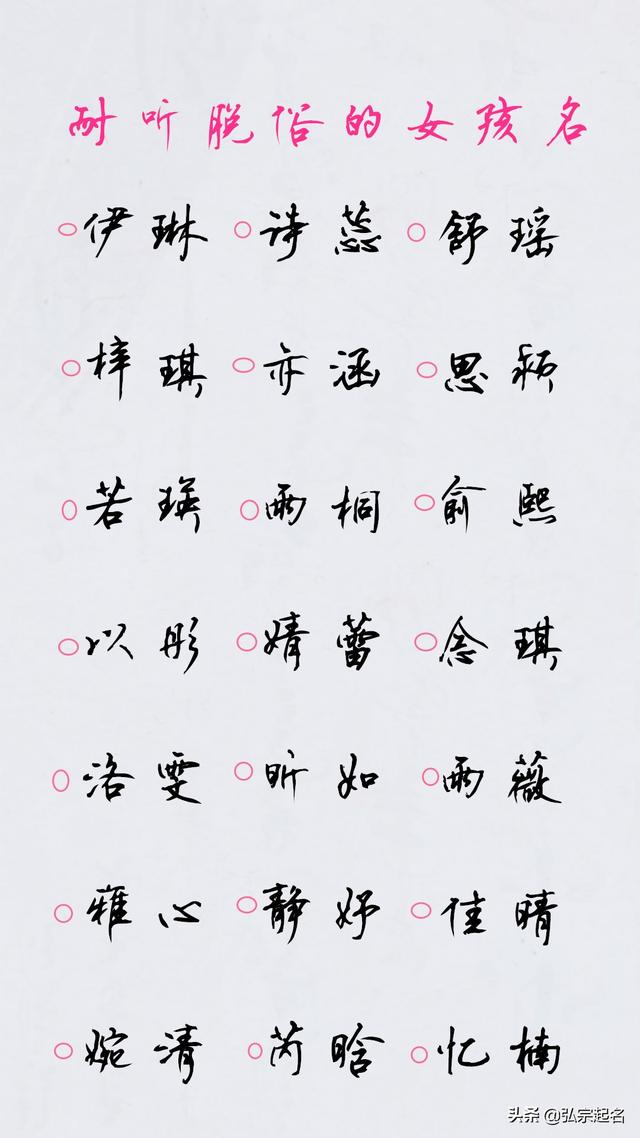 耐听脱俗的女孩名
伊琳 诗蕊 舒瑶
梓琪 亦涵 思颖
若瑛 雨桐 俞熙
以彤 婧蕾 念琪
洛雯 昕如 雨薇
雅心 静妤 佳晴
婉清 芮晗 忆楠
头条 @弘宗起名